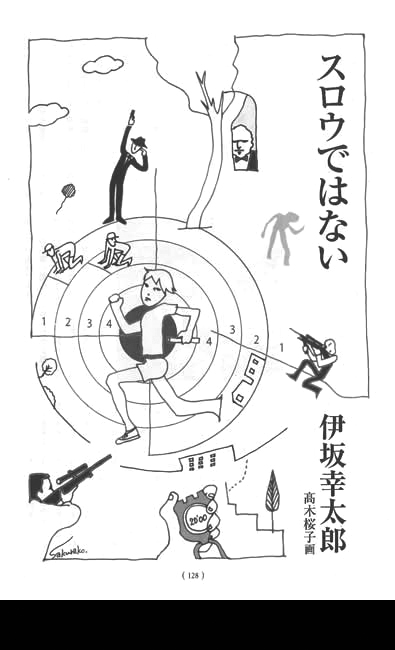 スロウではない
伊坂幸太郎
髙木桜子画
1 2 3 4
4 3 2 1
20'00
Sakurako.
( 128 )